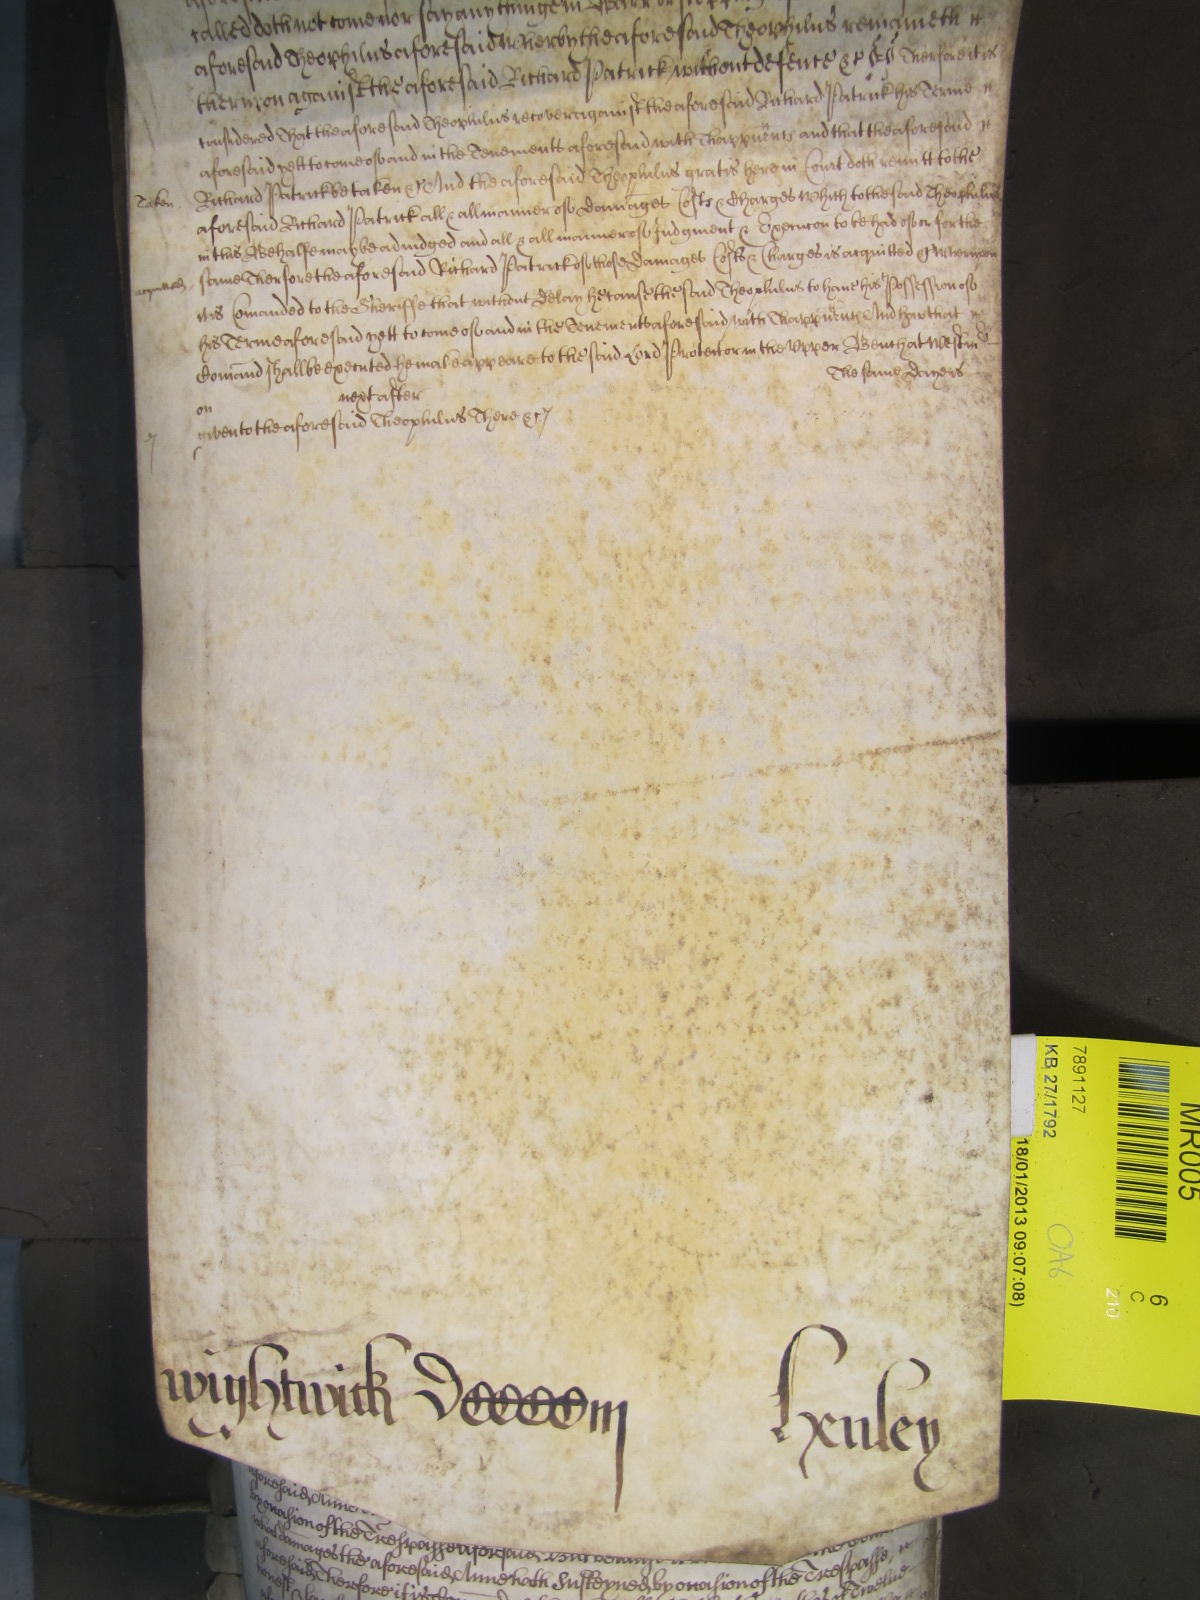 called doth not come nor say any thinge in
aforesaid Theophilus aforesaid Wherby the aforesaid Theophilus remaineth
therupon against the aforesaid Richard Patrick without defence &c Therfore it is
considered That the aforesaid Theophilus recover against the aforesaid Richard Patrick his Terme
aforesaid yett to come of and in the Tenements aforesaid with Thappurtents and that the aforesaid
Taken. Richard Patrick be taken &c And the aforesaid Theophilus gratis here in Court doth remitt to the
aforesaid Richard Patrick all & all manner of Damages Costs & Charges Which to the said Theophilus
in this Behalfe may be adiudged and all & all manner of Judgment & Execucon to be had of or for the
acquitted. same Therfore the aforesaid Richard Patrick of those Damages Costs & Charges is acquitted &c Wherupon
it is Comanded to the Sheriffe that without Delay he cause the said Theophilus to have his Possession of
his Terme aforesaid yett to come of and in the Tenements aforesaid with Thappurtents And how that
Comand shall be executed he make appeare to the said Lord Protector in the Upper Bench at Westmr
on next after The same Day is
given to the aforesaid Theophilus There &c
wightwick
Henley
aforesaid Anne
by occasion of the Trespasse aforesaid
what damages the aforesaid Anne hath Susteyned by occasion of the Trespasse
aforesaid Therefore it is of Twelve
MR005
6
C
210
OA6
7891127
KB 27/1792
18/01/2013 09:07:08)